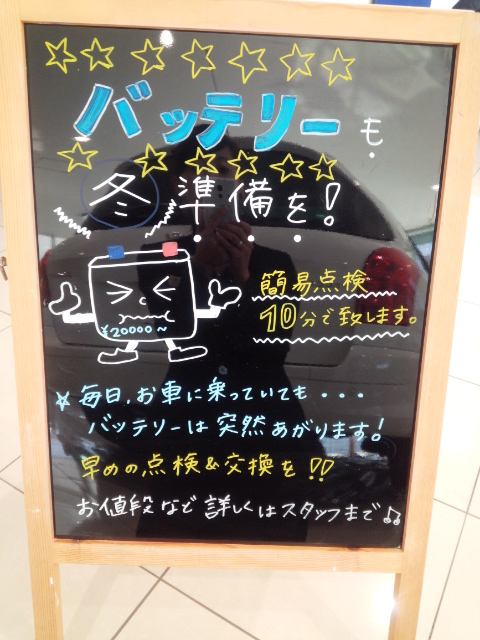 バッテリーも
冬準備を!
簡易点検
10分で致します。
¥20000~
毎日、お車に乗っていても・・・
バッテリーは突然あがります!
早めの点検&交換を!!
お値段など詳しくはスタッフまで♫